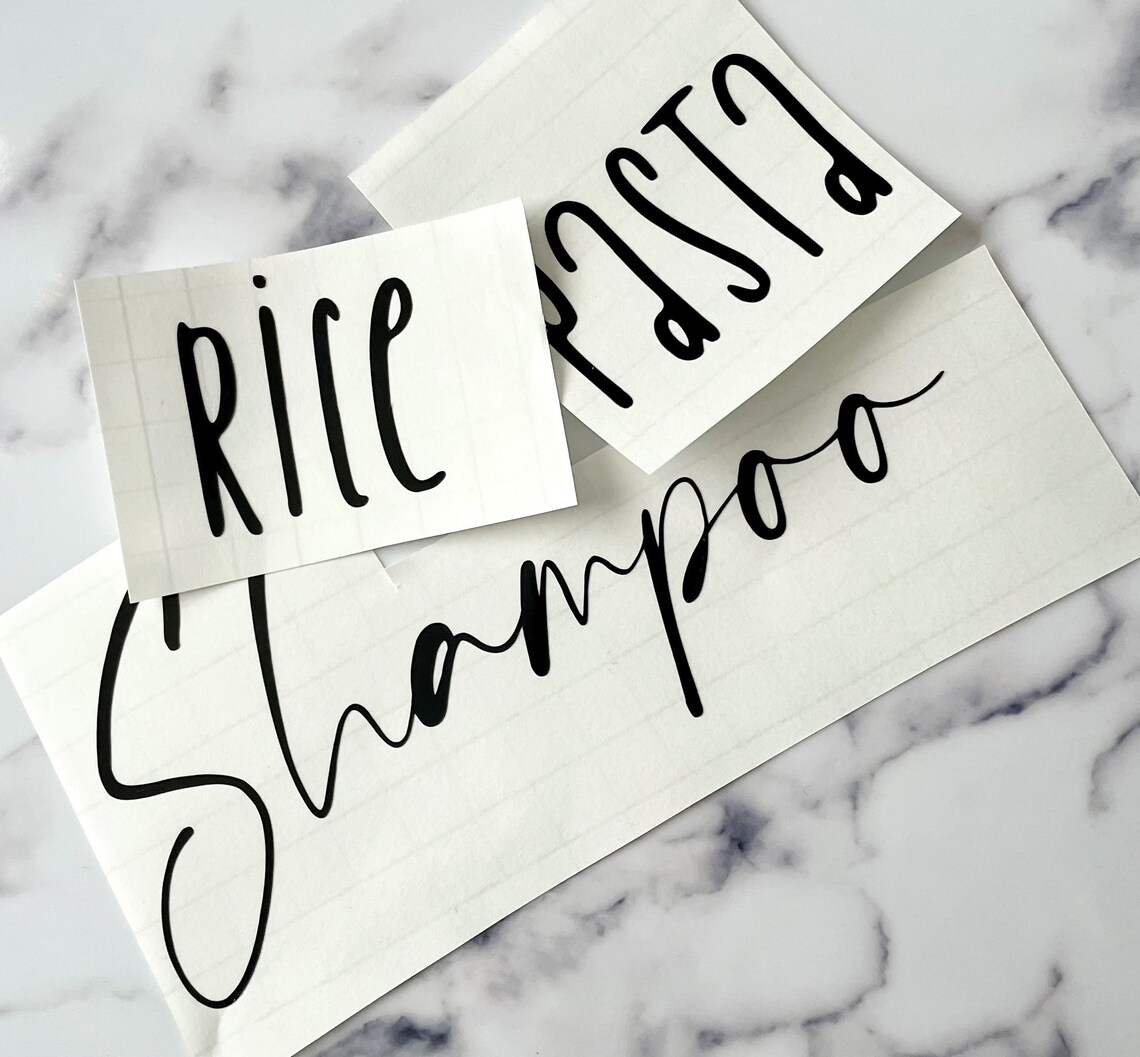 Rice
Pasta
Shampoo